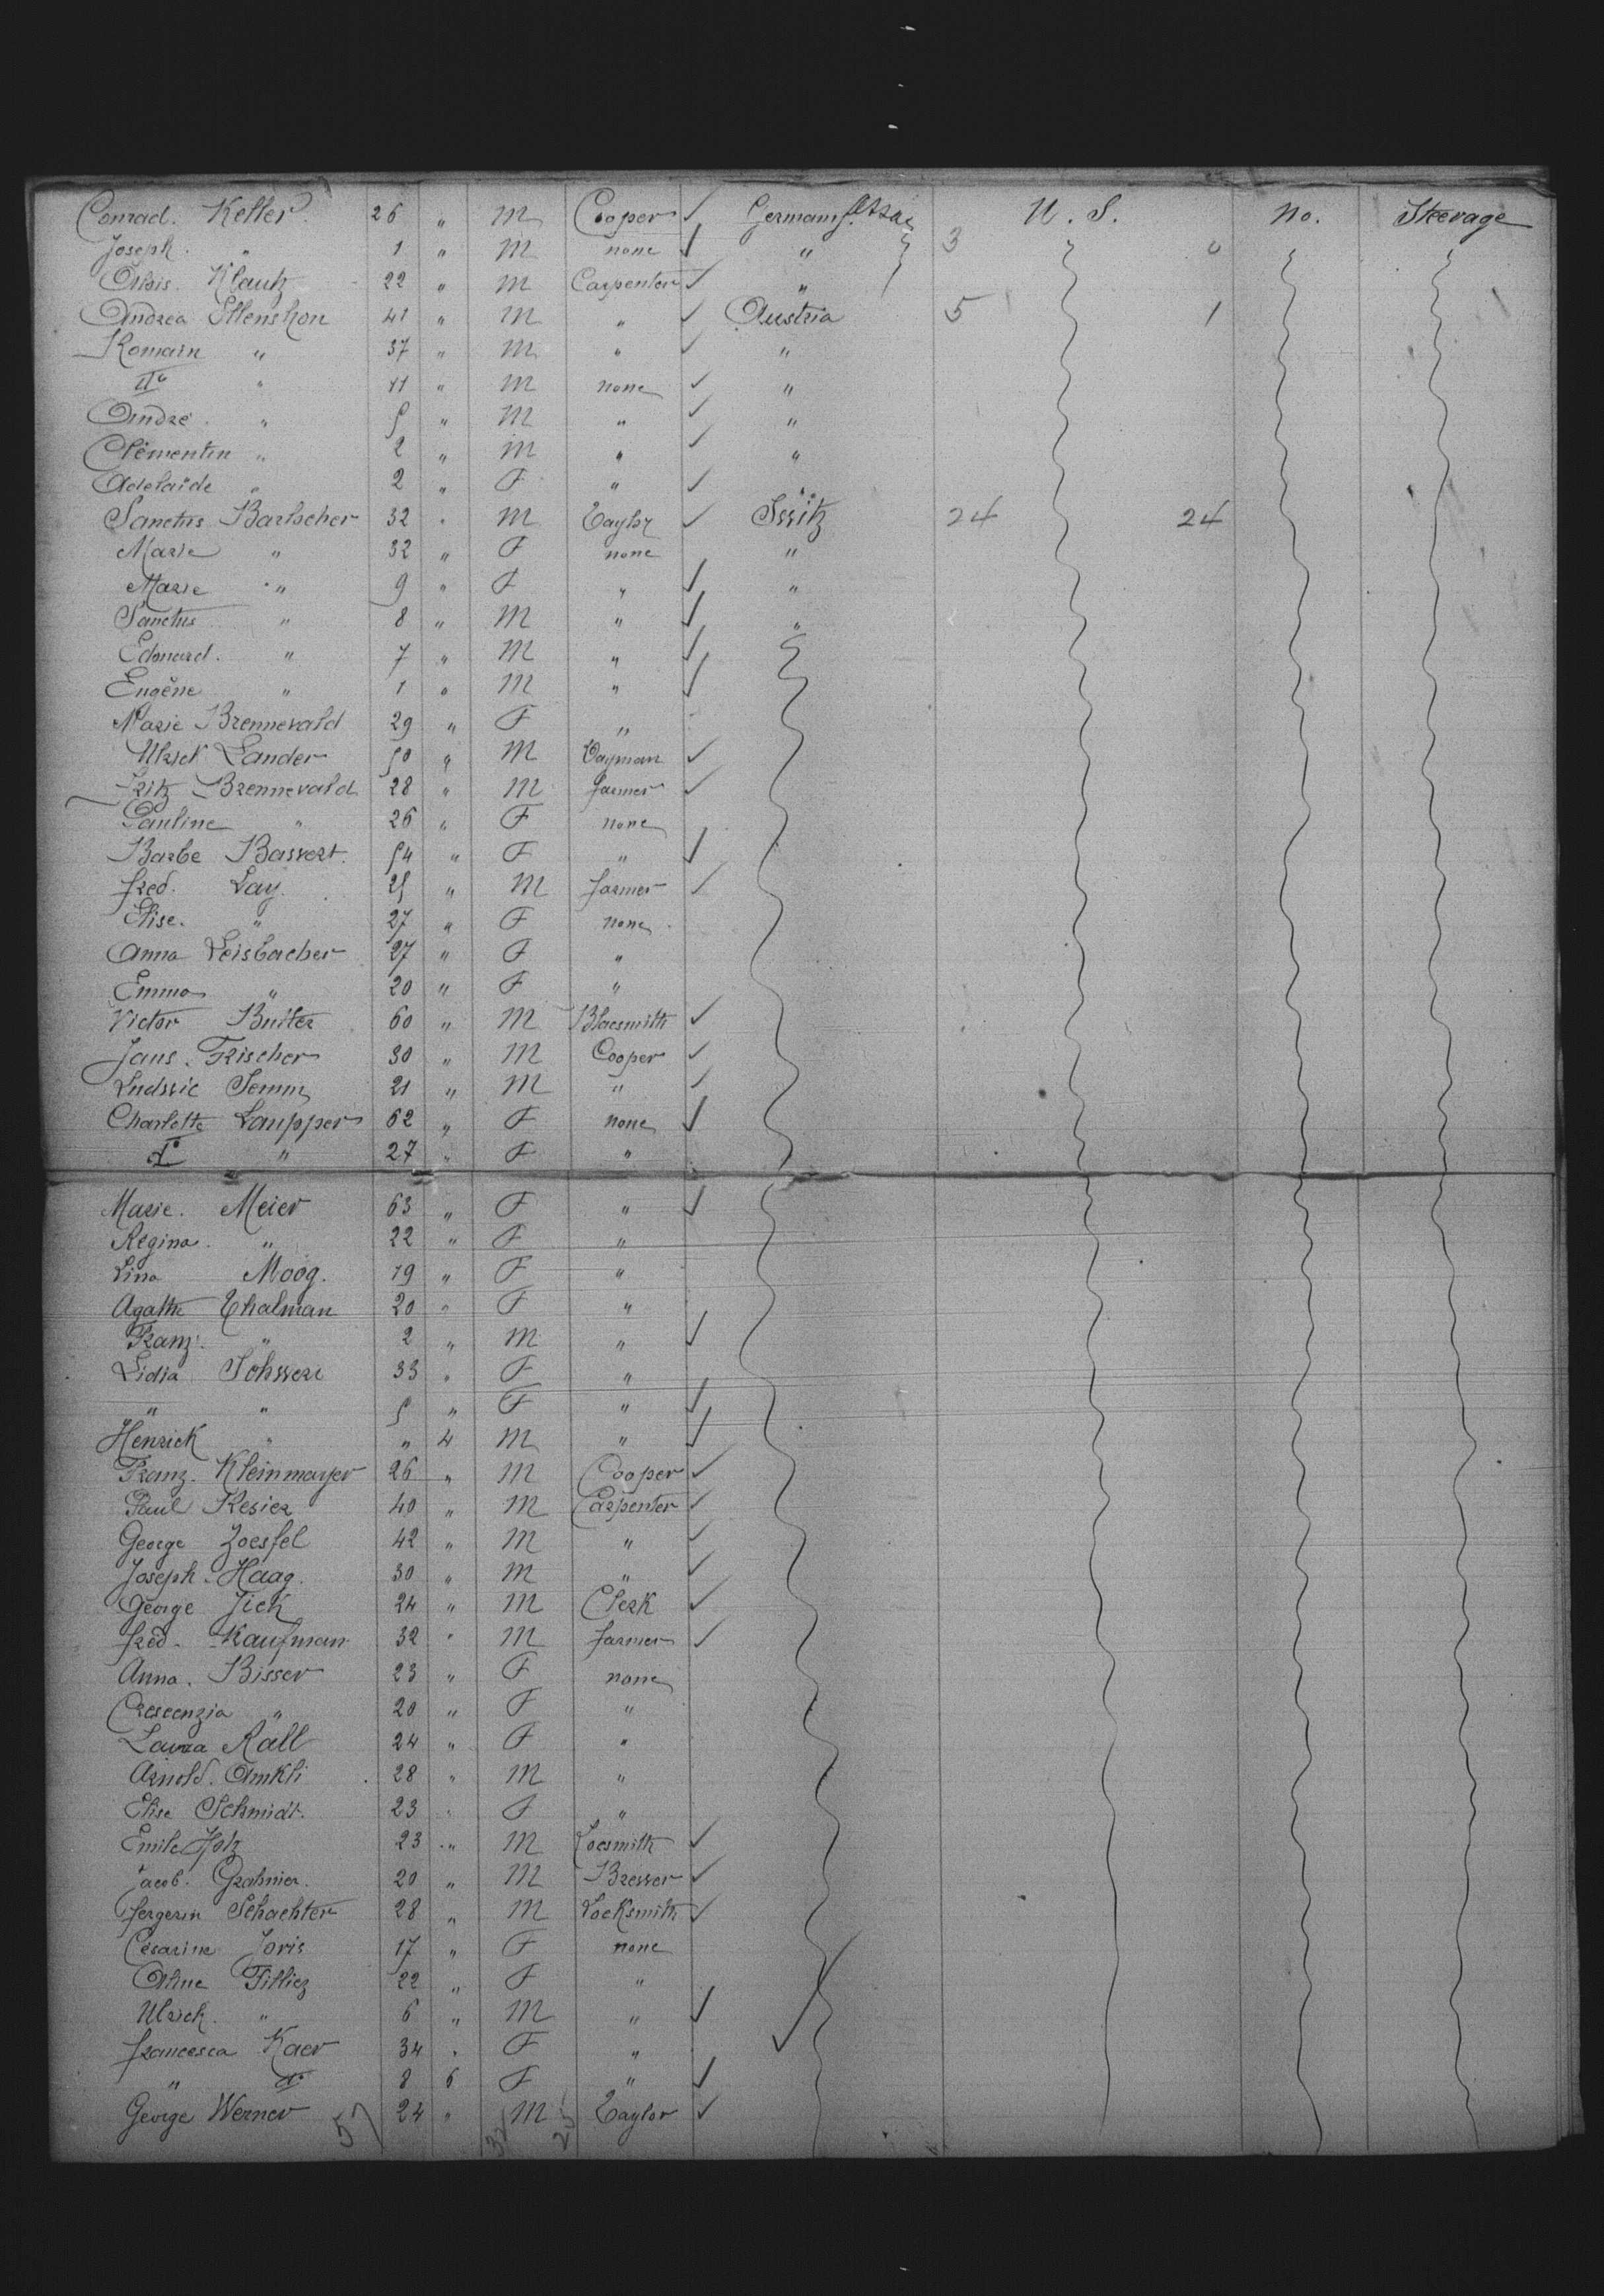 Conrad. Keller. 26 " M Cooper ✓ Germany U. S. No. Steerage
Joseph. " 1 " M none ✓ " 3 0
Klautz 22 " M Carpenter ✓ "
Andrea Ellenshon 41 " M " ✓ Austria 5 1
Romain " 37 " M " ✓ "
IIo " 11 " M none ✓ "
André. " 5 " M " ✓ "
Clémentin " 2 " M " ✓ "
Adelaïde " 2 " F " ✓ "
Sanctus Bartscher 32 " M Taylor ✓ 24 24
Marie " 32 " F none "
Marie " 9 " F " ✓ "
Sanctus " 8 " M " ✓ "
Edouard. " 7 " M " ✓
Eugène " 1 " M " ✓
Marie Brennevald 29 " F "
Ulrick Lander 50 " M ✓
Fritz Brennevald 28 " M farmer ✓
Pauline " 26 " F none
Barbe Bassert. 54 " F " ✓
fred. Lay. 25 " M farmer ✓
Elise. " 27 " F none
Anna Leisbacher 27 " F "
Emma " 20 " F "
Victor Buiter 60 " M Blacsmith ✓
Jans. Frischer 30 " M Cooper ✓
Ludwic 21 " M " ✓
Charlotte Laupper 62 " F none ✓
" 27 " F "
Marie. Meier 63 " F " ✓
Régina. " 22 " F "
Lina Moog. 19 " F "
Agathe Thalman 20 " F "
Franz. " 2 " M " ✓
Lidia 33 " F "
" " 5 " F " ✓
Henrick " " 4 M " ✓
Franz. Kleinmayer 26 " M Cooper ✓
Paul Resier 40 " M Carpenter ✓
George Zoesfel 42 " M " ✓
Joseph. Haag. 30 " M " ✓
George Jick 24 " M Clerk ✓
fred. Kaufman 32 " M farmer ✓
Anna. Bisser 23 " F none
Crescenzia " 20 " F "
Laura Rall 24 " F "
Arnold. Amkli 28 " M "
Elise Schmidt. 23 " F "
Emile Hotz 23 " M Locsmith ✓
Jacob. Grahnier. 20 " M Bresser ✓
Schachter 28 " M Locksmith ✓
Césarine Joris 17 " F none
Aline Filliez 22 " F "
Ulrick. " 6 " M " ✓
francesca Kaer 34 " F "
" 8 6 F " ✓
George Werner 24 " M Taylor ✓
57 32 25